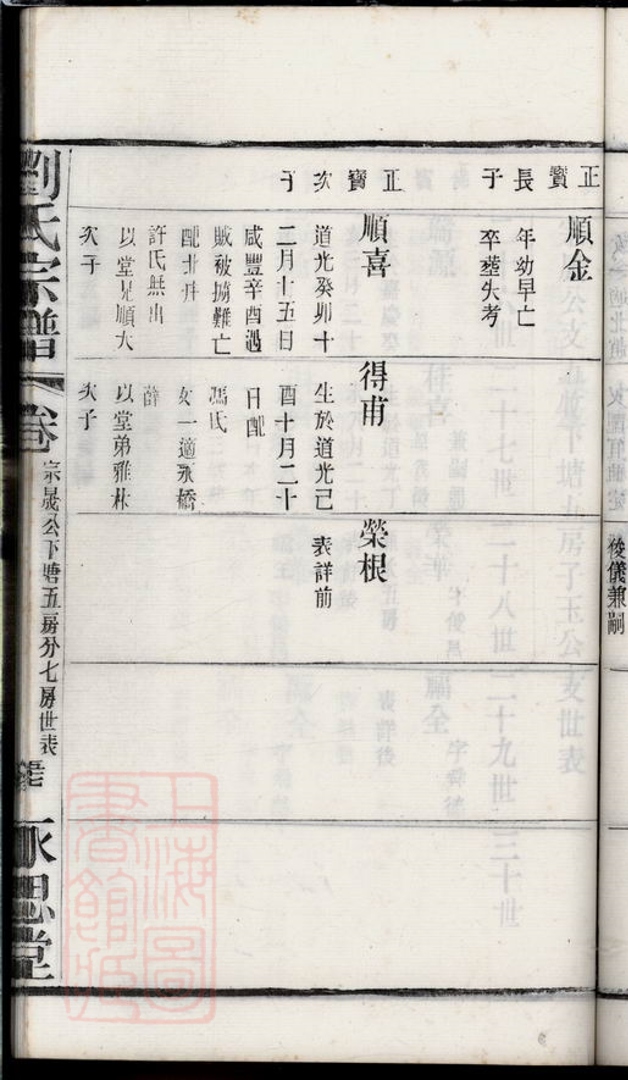 正寶長子
順金
年幼早亡
卒塟失考
正寶次子
順喜
道光癸卯十
二月十五日
咸豐辛酉遇
賊被擄難亡
配北井
許氏無出
以堂兄順大
次子
得甫
生於道光己
酉十月二十
日配
馮氏
女一適永橋
薛
以堂弟雅林
次子
榮根
表詳前
劉氏宗譜
卷
宗晟公下塘五房分七房世表
永思堂
俊儀兼嗣
上海圖書館藏